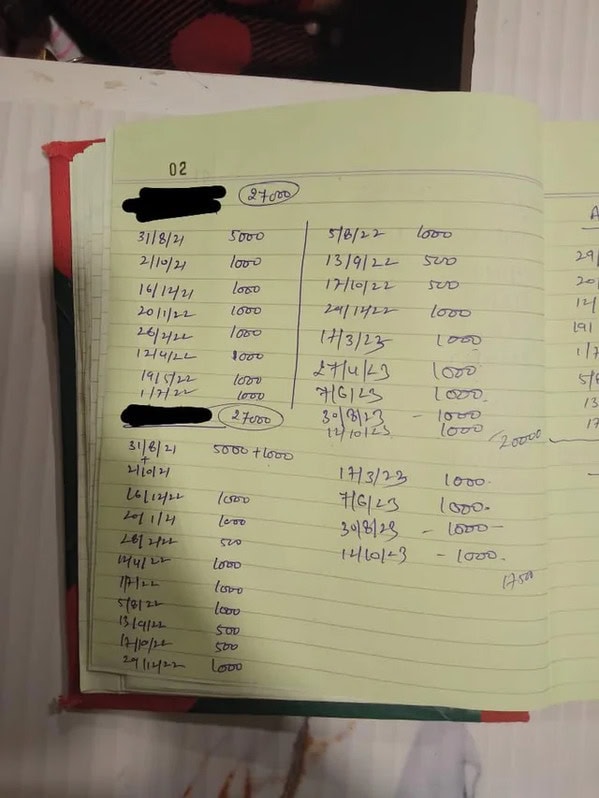 02
27000
31/8/21 5000
2/10/21 1000
16/12/21 1000
20/1/22 1000
26/2/22 1000
12/4/22 1000
19/5/22 1000
1/7/22 1000
5/8/22 1000
13/9/22 500
17/10/22 500
29/12/22 1000
17/3/23 1000
27/4/23 1000
7/6/23 1000
30/8/23 - 1000
12/10/23 1000
20000
27000
31/8/21 5000 + 1000
+
2/10/21
16/12/22 1000
20/1/21 1000
28/2/22 500
12/4/22 1000
1/7/22 1000
5/8/22 1000
13/9/22 500
17/10/22 500
29/12/22 1000
17/3/23 1000.
7/6/23 1000.
30/8/23 - 1000 -
12/10/23 - 1000.
17500
A
29/
20/
12/
19/
1/7
5/8
13
17